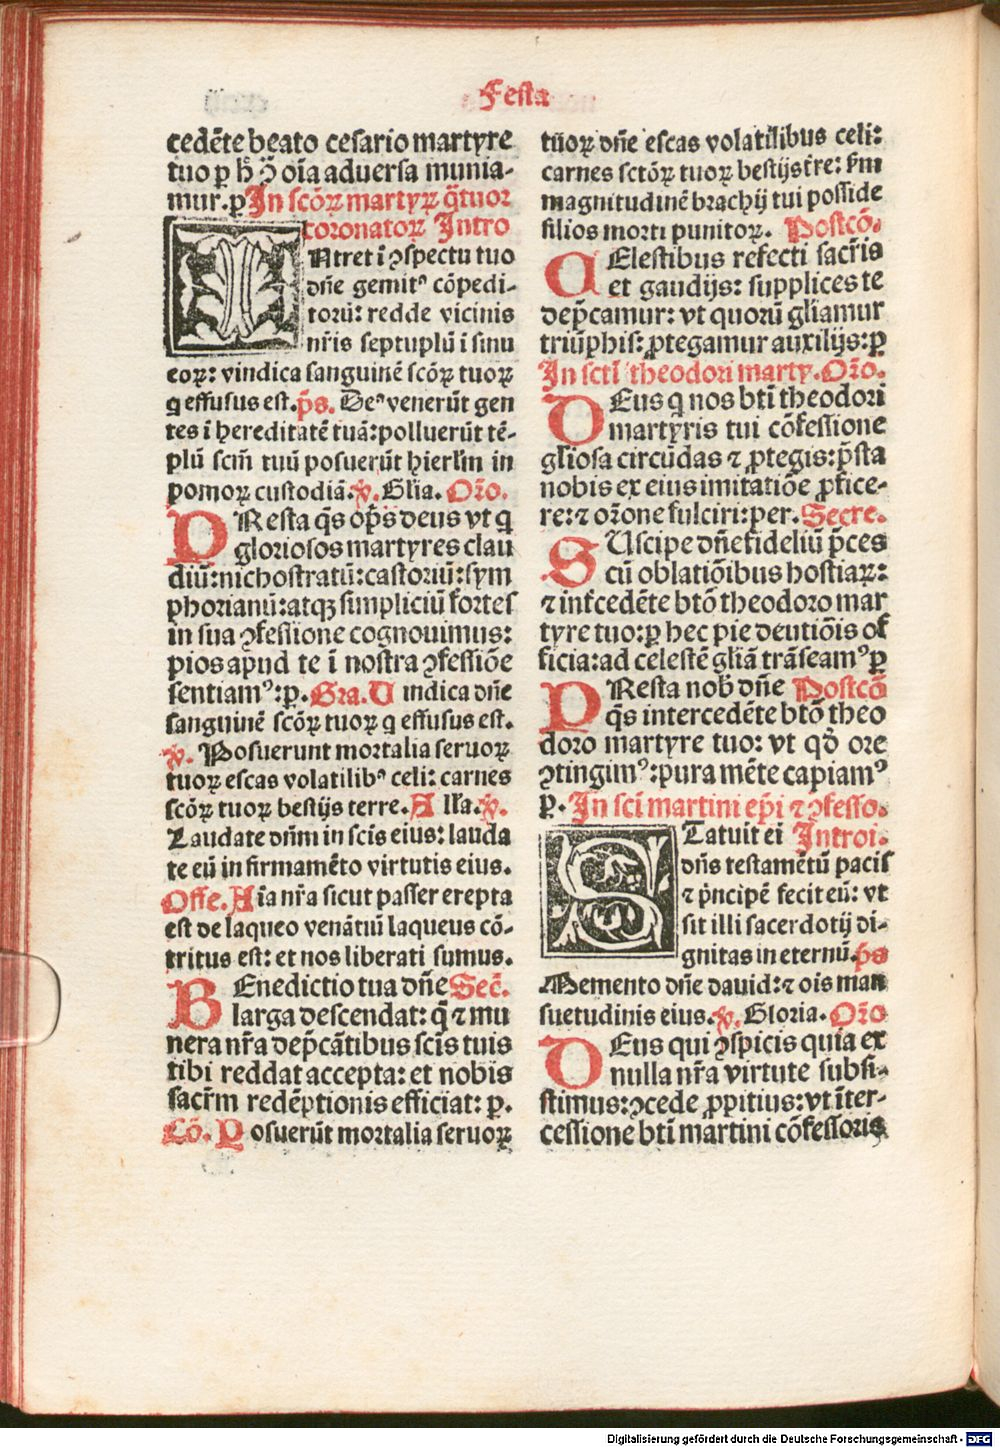 Festa
cedẽte beato cesario martyre
tuo ꝑ h̃ ꝯ oĩa aduersa munia-
mur.ꝑ In scõꝝ martyꝝ q̃tuor
coronatoꝝ Intro
INtret ĩ ꝯspectu tuo
dñe gemitꝰ cõpedi-
torũ: redde vicinis
nr̃is septuplũ i sinu
eoꝝ: vindica sanguinẽ scõꝝ tuoꝝ
q effusus est.p̃s. Deꝰ venerũt gen
tes ĩ hereditatẽ tuã:polluerũt tẽ-
plũ scm̃ tuũ posuerũt hierlm̃ in
pomoꝝ custodiã.℣. Glia. Oro.
PResta q̃s op̃s deus vt q
gloriosos martyres clau
diũ:nichostratũ:castoriũ:sym
phorianũ:atqꝫ simpliciũ fortes
in sua ꝯfessione cognouimus:
pios apud te ĩ nostra ꝯfessiõe
sentiamꝰ:ꝑ. Gra.Uindica dñe
sanguinẽ scõꝝ tuoꝝ q effusus est.
℣. Posuerunt mortalia seruoꝝ
tuoꝝ escas volatilibꝰ celi: carnes
scõꝝ tuoꝝ bestijs terre.Alla.℣.
Laudate dñm in scis eius: lauda
te eũ in firmamẽto virtutis eius.
Offe. Aĩa nr̃a sicut passer erepta
est de laqueo venãtiũ laqueus cõ-
tritus est: et nos liberati sumus.
BEnedictio tua dñe Sec̃.
larga descendat: q̃ ⁊ mu
nera nr̃a dep̃cãtibus scis tuis
tibi reddat accepta: et nobis
sacrm̃ redẽptionis efficiat: ꝑ.
Cõ. Posuerũt mortalia seruoꝝ
tuoꝝ dñe escas volatilibus celi:
carnes sctõꝝ tuoꝝ bestijs tr̃e: ẜm
magnitudinẽ brachij tui posside
filios morti punitoꝝ. Postcõ.
CElestibus refecti sacris
et gaudijs: supplices te
dep̃camur: vt quorũ gliamur
triũphis: ꝓtegamur auxilijs:ꝑ
In scti theodori marty.Oro.
DEus q nos bti theodori
martyris tui cõfessione
gliosa circũdas ⁊ ꝓtegis: p̃sta
nobis ex eius imitatiõe ꝓfice-
re:⁊ orõne fulciri:per. Secre.
SUscipe dñe fideliũ p̃ces
cũ oblatiõibus hostiaꝝ:
⁊ int̾cedẽte btõ theodoro mar
tyre tuo:ꝑ hec pie deuotiõis of
ficia:ad celestẽ gliã trãseamꝰ ꝑ
PResta nob̾ dñe Postcõ
q̃s intercedẽte btõ theo
doro martyre tuo: vt qđ ore
ꝯtingimꝰ:pura mẽte capiamꝰ
ꝑ. In sci martini ep̃i ⁊ ꝯfesso.
STatuit ei Introi.
dñs testamẽtũ pacis
⁊ p̃ncipẽ fecit eũ: vt
sit illi sacerdotij di-
gnitas in eternũ.p̃s
Memento dñe dauid:⁊ ois man
suetudinis eius.℣. Gloria. Oro
DEus qui ꝯspicis quia ex
nulla nr̃a virtute subsi-
stimus:ꝯcede ꝓpitius:vt ĩter-
cessione bti martini cõfessoris
Digitalisierung gefördert durch die Deutsche Forschungsgemeinschaft - DFG